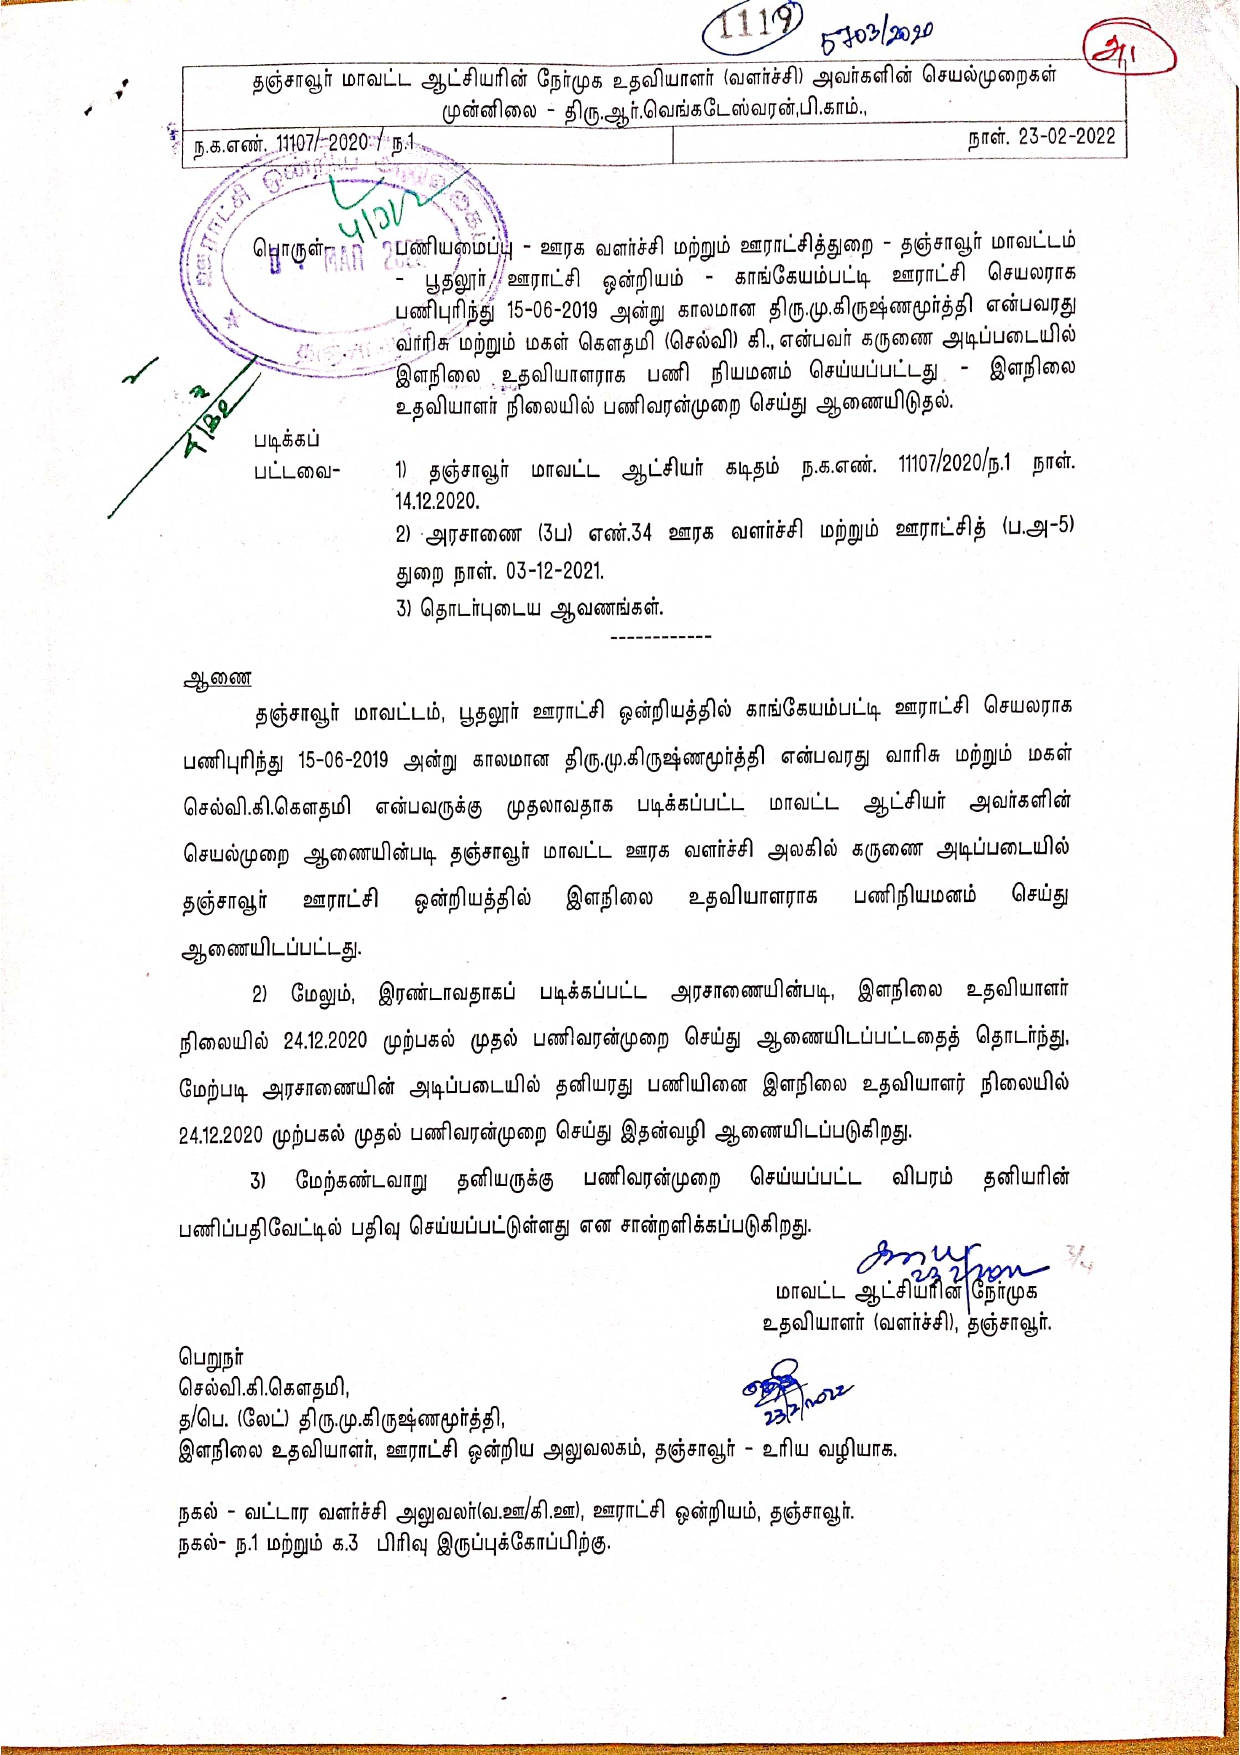 1119
5703/2020
அ1
தஞ்சாவூர் மாவட்ட ஆட்சியரின் நேர்முக உதவியாளர் (வளர்ச்சி) அவர்களின் செயல்முறைகள்
முன்னிலை - திரு.ஆர்.வெங்கடேஸ்வரன்,பி.காம்.,
ந.க.எண். 11107/-2020 / ந.1 நாள். 23-02-2022
பொருள்- பணியமைப்பு - ஊரக வளர்ச்சி மற்றும் ஊராட்சித்துறை - தஞ்சாவூர் மாவட்டம்
- பூதலூர் ஊராட்சி ஒன்றியம் - காங்கேயம்பட்டி ஊராட்சி செயலராக
பணிபுரிந்து 15-06-2019 அன்று காலமான திரு.மு.கிருஷ்ணமூர்த்தி என்பவரது
வாரிசு மற்றும் மகள் கௌதமி (செல்வி) கி., என்பவர் கருணை அடிப்படையில்
இளநிலை உதவியாளராக பணி நியமனம் செய்யப்பட்டது - இளநிலை
உதவியாளர் நிலையில் பணிவரன்முறை செய்து ஆணையிடுதல்.
படிக்கப்
பட்டவை- 1) தஞ்சாவூர் மாவட்ட ஆட்சியர் கடிதம் ந.க.எண். 11107/2020/ந.1 நாள்.
14.12.2020.
2) அரசாணை (3ப) எண்.34 ஊரக வளர்ச்சி மற்றும் ஊராட்சித் (ப.அ-5)
துறை நாள். 03-12-2021.
3) தொடர்புடைய ஆவணங்கள்.
------------
ஆணை
தஞ்சாவூர் மாவட்டம், பூதலூர் ஊராட்சி ஒன்றியத்தில் காங்கேயம்பட்டி ஊராட்சி செயலராக
பணிபுரிந்து 15-06-2019 அன்று காலமான திரு.மு.கிருஷ்ணமூர்த்தி என்பவரது வாரிசு மற்றும் மகள்
செல்வி.கி.கௌதமி என்பவருக்கு முதலாவதாக படிக்கப்பட்ட மாவட்ட ஆட்சியர் அவர்களின்
செயல்முறை ஆணையின்படி தஞ்சாவூர் மாவட்ட ஊரக வளர்ச்சி அலகில் கருணை அடிப்படையில்
தஞ்சாவூர் ஊராட்சி ஒன்றியத்தில் இளநிலை உதவியாளராக பணிநியமனம் செய்து
ஆணையிடப்பட்டது.
2) மேலும், இரண்டாவதாகப் படிக்கப்பட்ட அரசாணையின்படி, இளநிலை உதவியாளர்
நிலையில் 24.12.2020 முற்பகல் முதல் பணிவரன்முறை செய்து ஆணையிடப்பட்டதைத் தொடர்ந்து,
மேற்படி அரசாணையின் அடிப்படையில் தனியரது பணியினை இளநிலை உதவியாளர் நிலையில்
24.12.2020 முற்பகல் முதல் பணிவரன்முறை செய்து இதன்வழி ஆணையிடப்படுகிறது.
3) மேற்கண்டவாறு தனியருக்கு பணிவரன்முறை செய்யப்பட்ட விபரம் தனியரின்
பணிப்பதிவேட்டில் பதிவு செய்யப்பட்டுள்ளது என சான்றளிக்கப்படுகிறது.
23/2/2022
மாவட்ட ஆட்சியரின் நேர்முக
உதவியாளர் (வளர்ச்சி), தஞ்சாவூர்.
பெறுநர்
செல்வி.கி.கௌதமி,
23/2/2022
த/பெ. (லேட்) திரு.மு.கிருஷ்ணமூர்த்தி,
இளநிலை உதவியாளர், ஊராட்சி ஒன்றிய அலுவலகம், தஞ்சாவூர் - உரிய வழியாக.
நகல் - வட்டார வளர்ச்சி அலுவலர்(வ.ஊ/கி.ஊ), ஊராட்சி ஒன்றியம், தஞ்சாவூர்.
நகல்- ந.1 மற்றும் க.3 பிரிவு இருப்புக்கோப்பிற்கு.